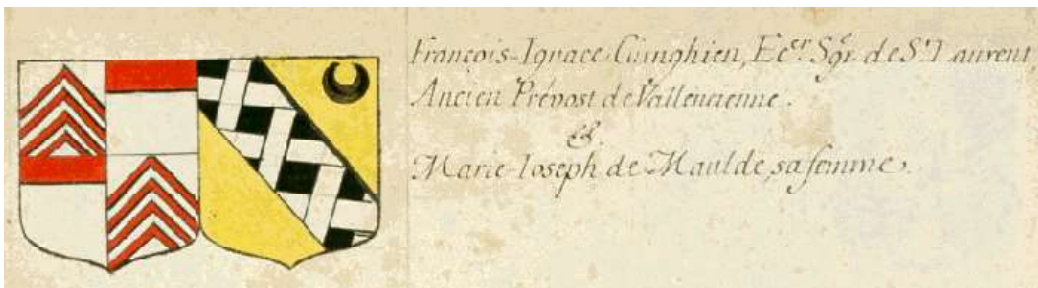 François-Ignace Cuinghien, Ecer. Sgr. de St. Laurent,
Ancien Prévost de Vallencienne.
&
Marie-Ioseph de Maulde, sa femme.